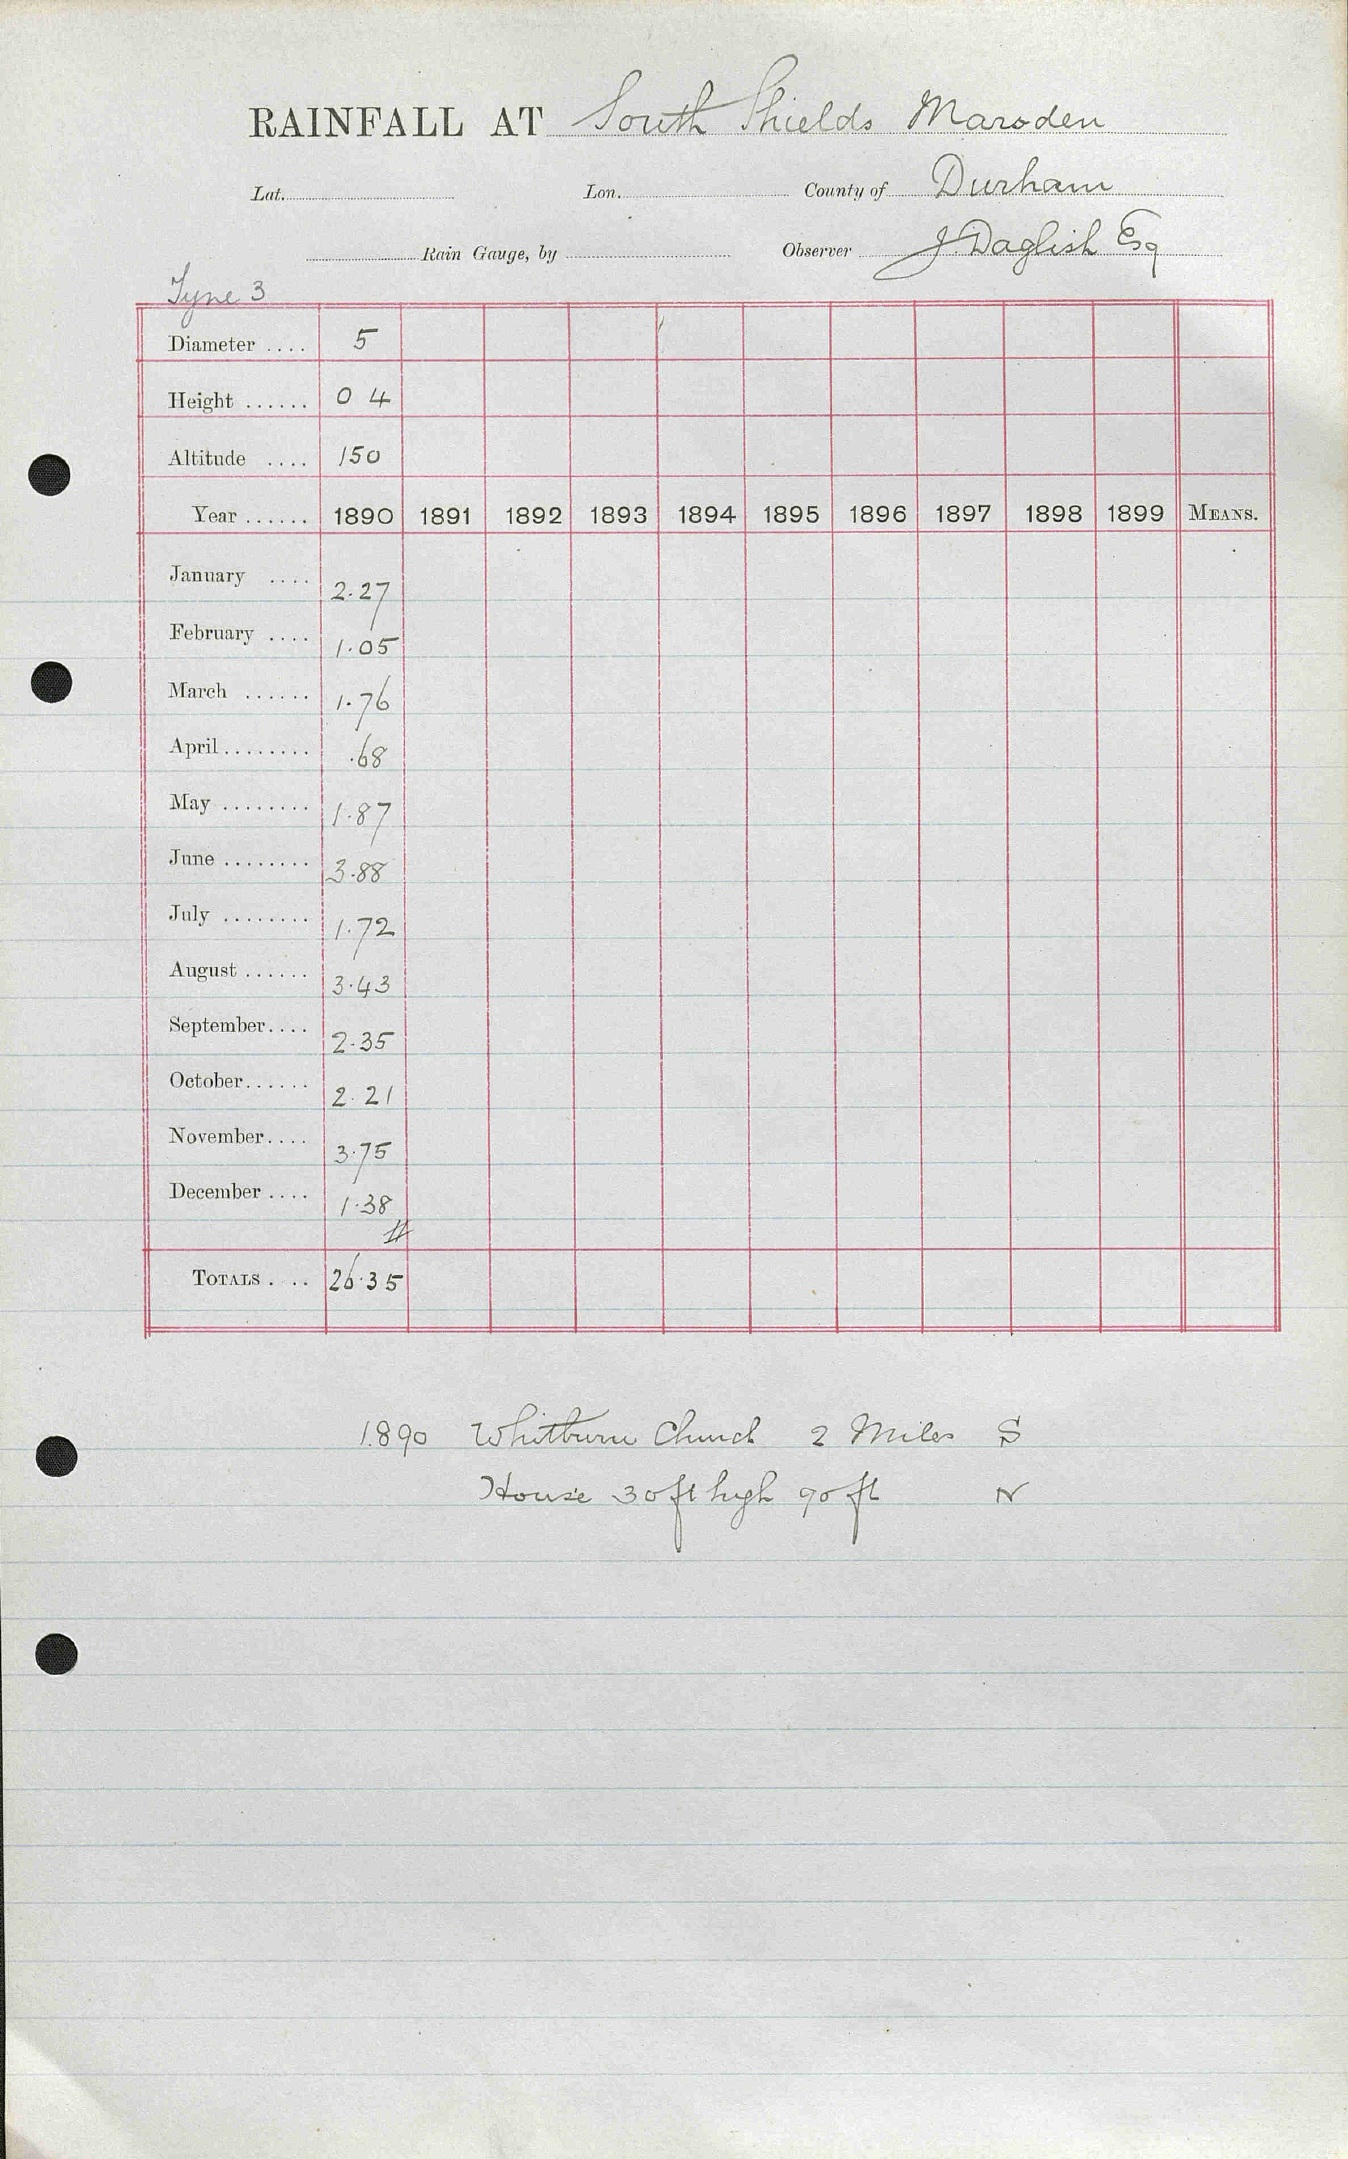 RAINFALL AT South Shields Marsden
Lat. Lon. County of Durham
Rain Gauge, by Observer J. Daglish Esq
Tyne 3
Diameter .... 5
Height ...... 0 4
Altitude .... 150
Year ...... 1890 1891 1892 1893 1894 1895 1896 1897 1898 1899 MEANS.
January .... 2.27
February .... 1.05
March ...... 1.76
April ........ .68
May ........ 1.87
June ........ 3.88
July ........ 1.72
August ...... 3.43
September.... 2.35
October...... 2.21
November.... 3.75
December .... 1.38
TOTALS . .. 26.35
1890 Whitburn Church 2 Miles S
House 30 ft high 90 ft N